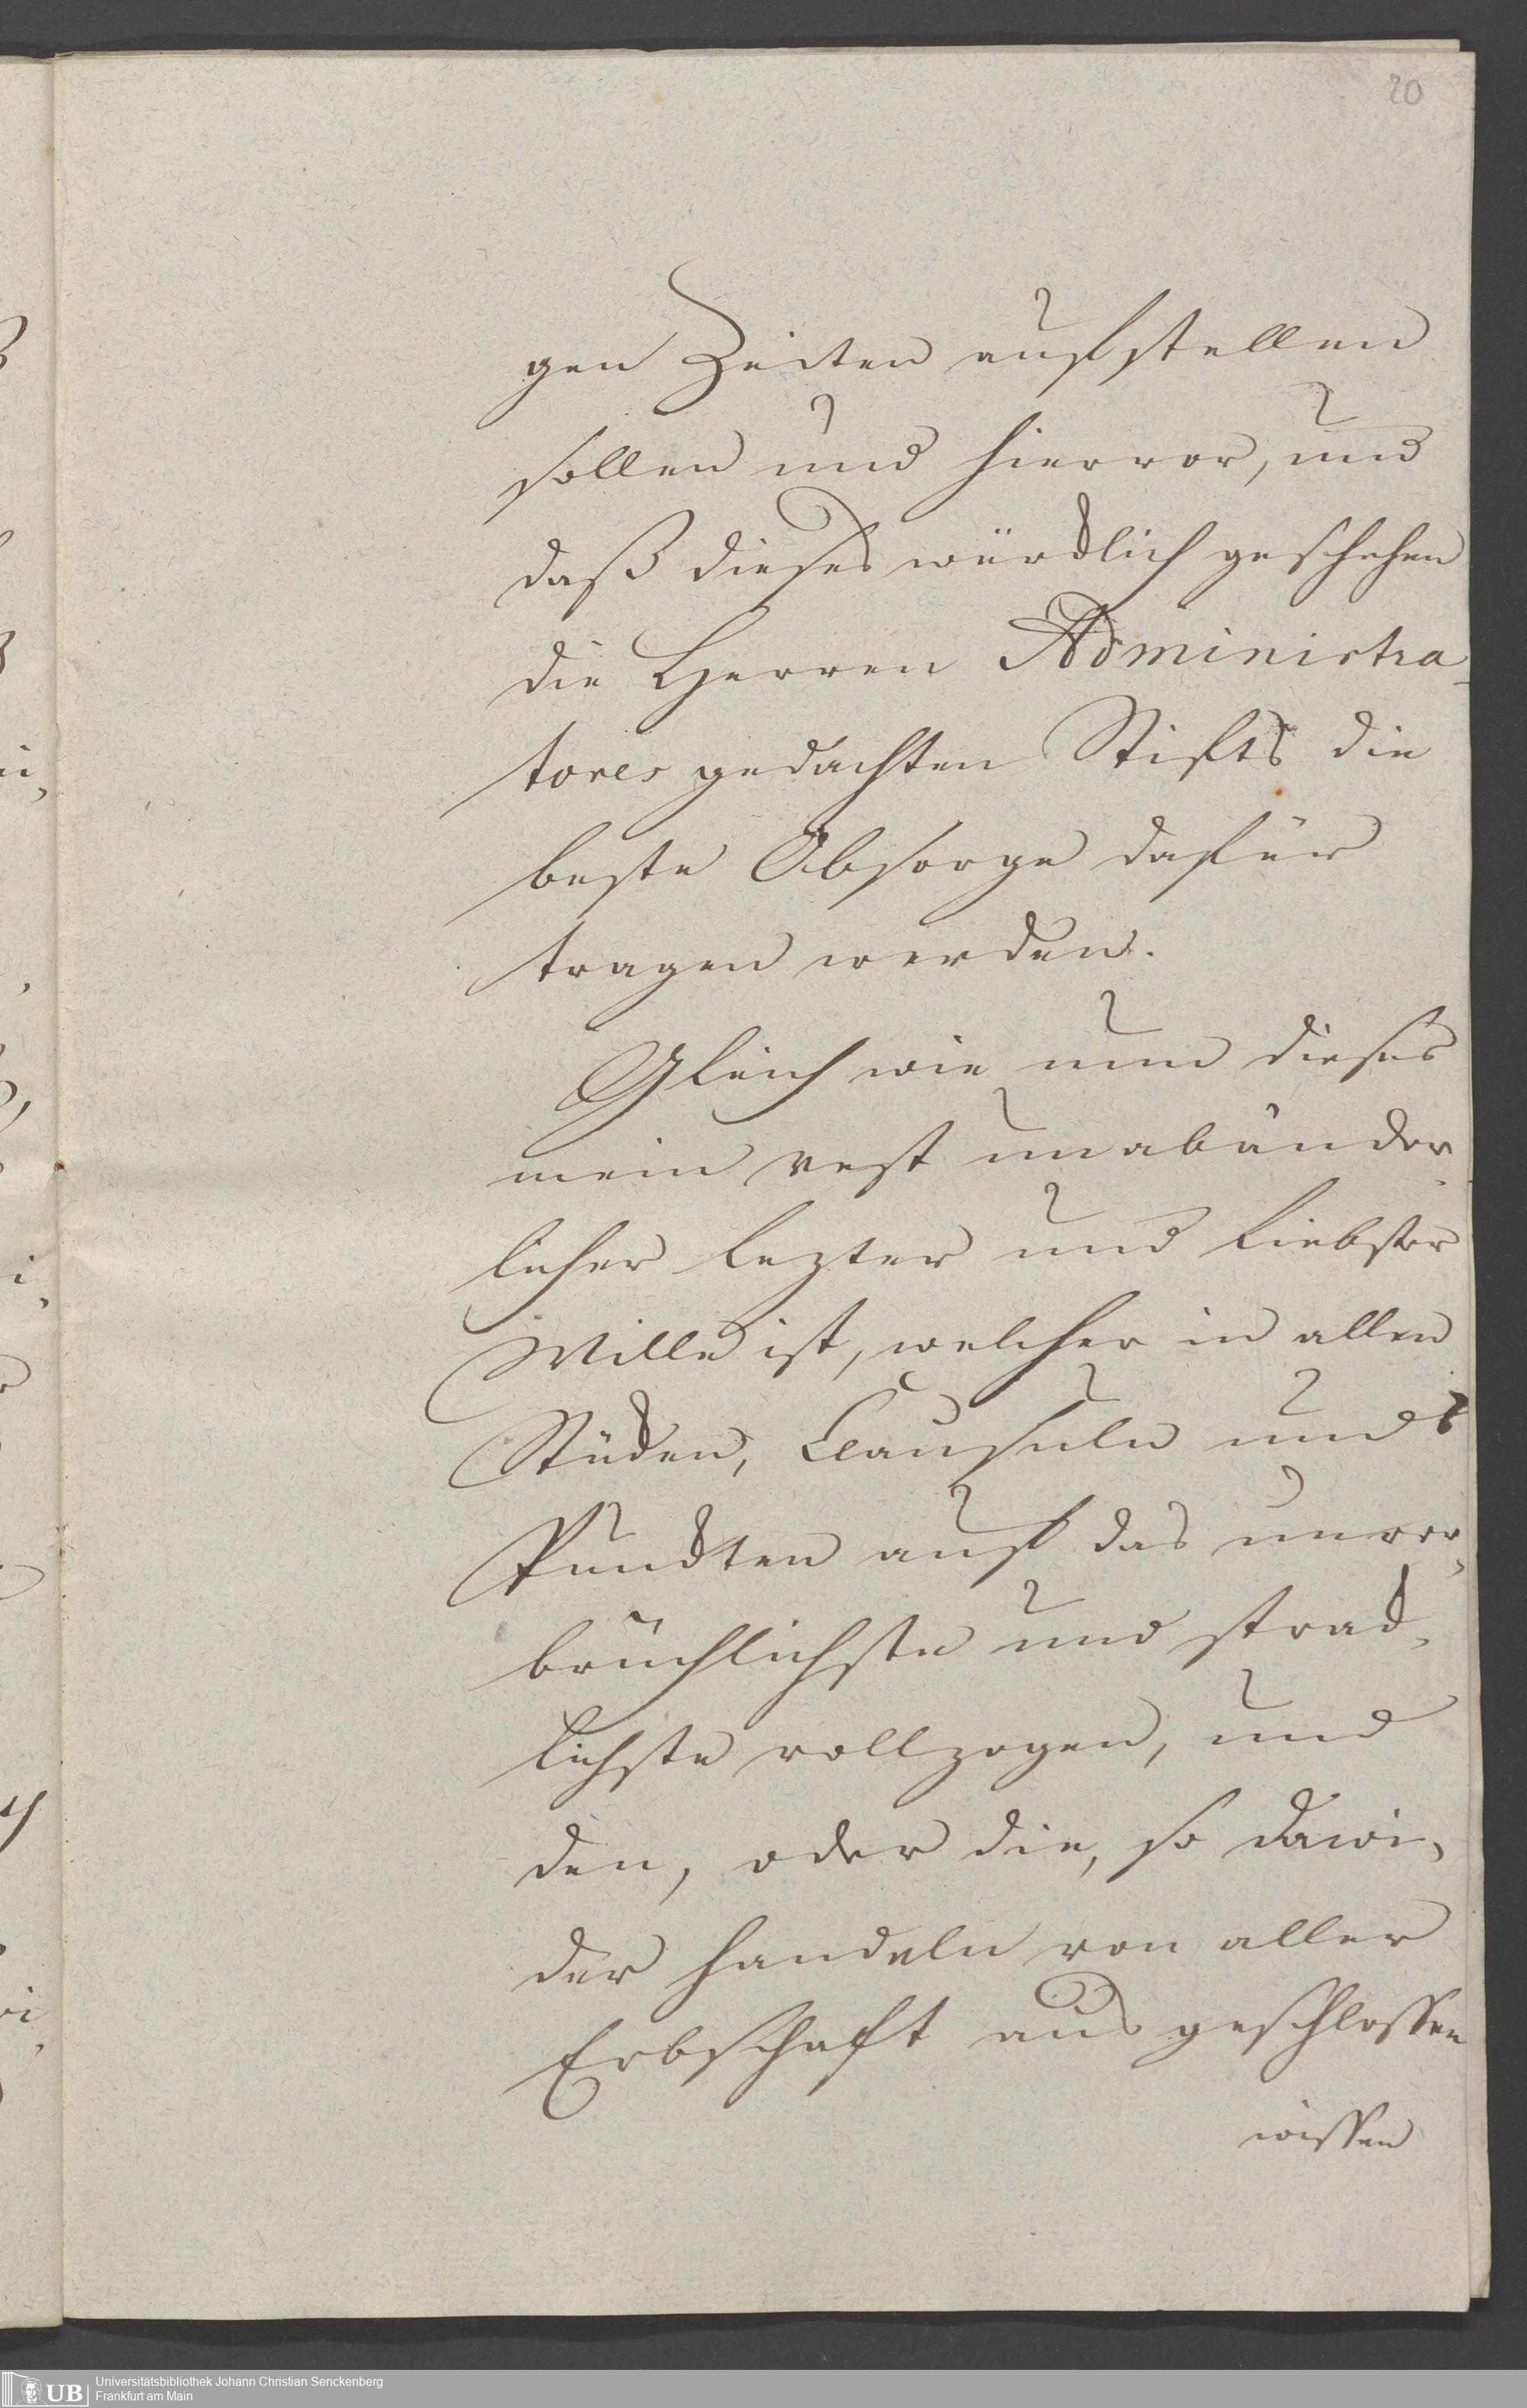 20
gen Zeiten aufstellen
sollen und hiervor, und
daß dieses würcklich geschehen
die Herren Administra-
tores gedachten Stifts die
beste Obsorge dafür
tragen werden.
Gleich wie nun dieses
mein vest unabänder-
licher lezter und liebster
Wille ist, welcher in allen
Stücken, Clausuln und
Punckten auf das unver-
brüchlichste und strack-
lichste vollzogen, und
den, oder die, so dawi-
der handeln von aller
Erbschaft ausgeschlossen
wissen
UB
Universitätsbibliothek Johann Christian Senckenberg
Frankfurt am Main